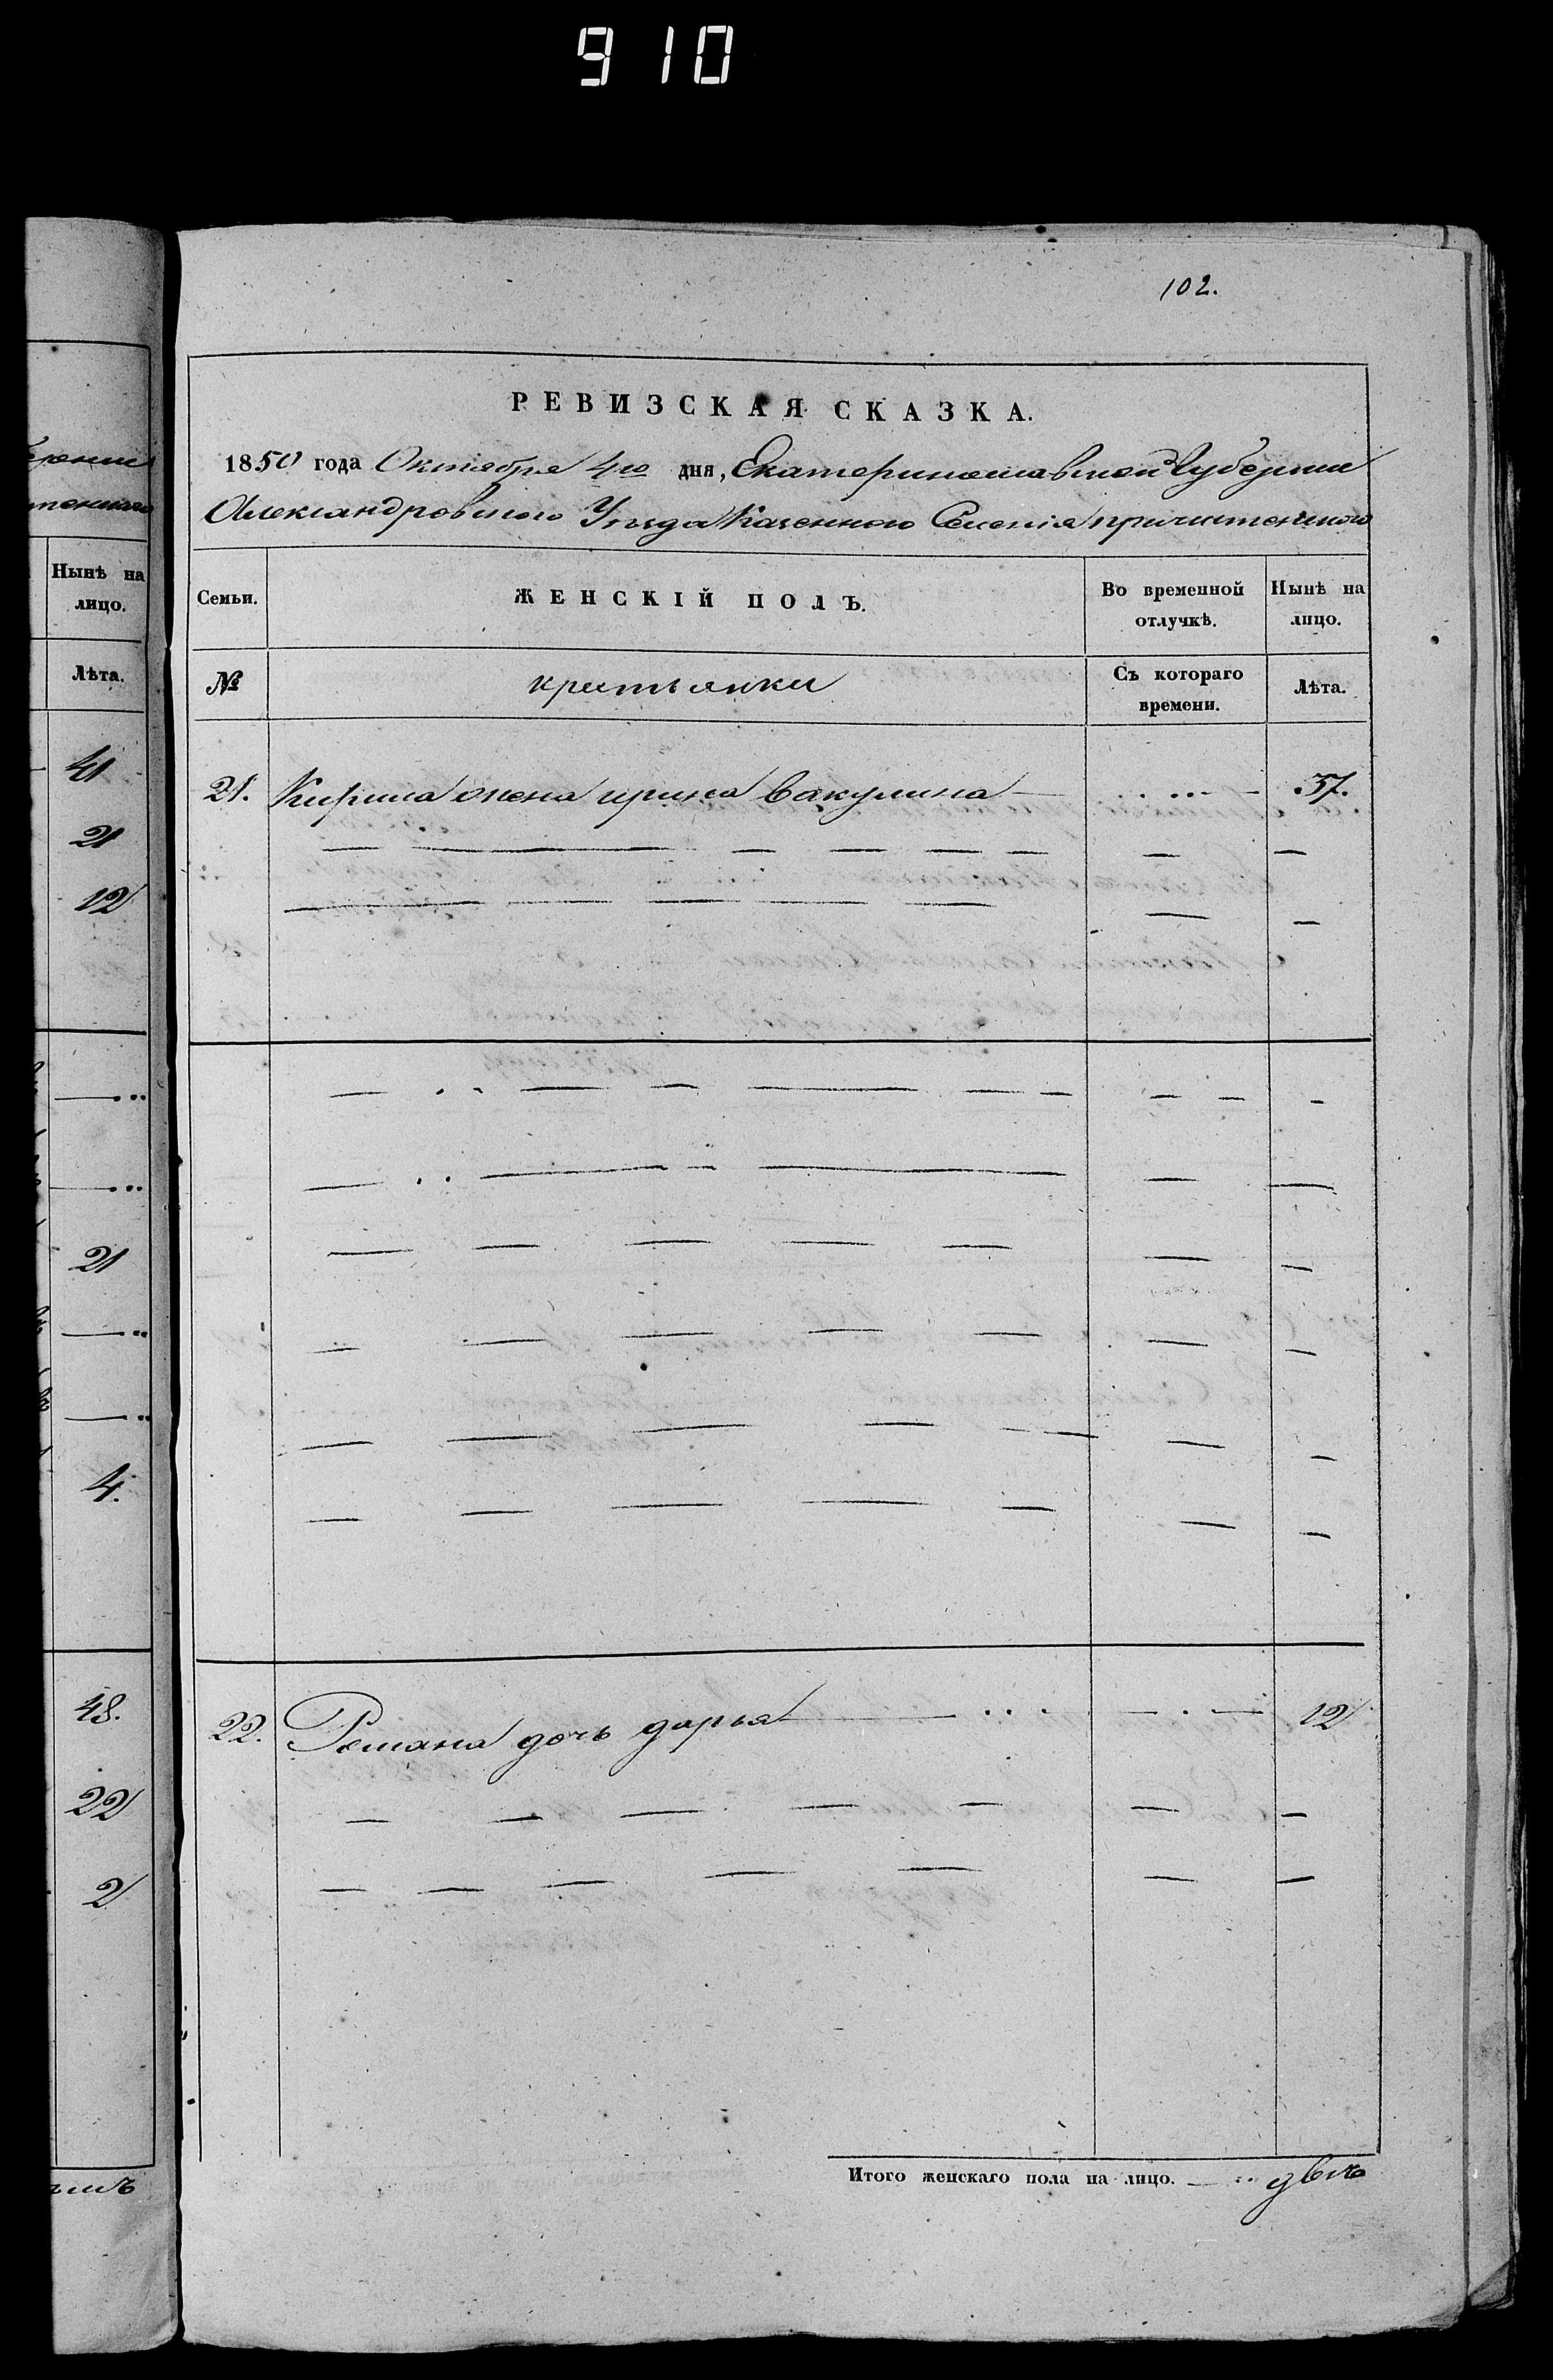 9 10
102.
РЕВИЗСКАЯ СКАЗКА.
1850 года Октября 4го дня, Екатеринославской Губернии
Александровского Уѣзда Казенного Селенія причитенного
Нынѣ на
лицо.
Лѣта.
41
21
12
21
4.
48.
22
2
Семьи.
ЖЕНСКІЙ ПОЛЪ.
Во временной
отлучкѣ.
Нынѣ на
лицо.
№
крестьянки
Съ котораго
времени.
Лѣта.
21. Кирила жена ирина вакулина 37.
22. Романа дочь дарья 12
Итого женскаго пола на лицо. двѣ